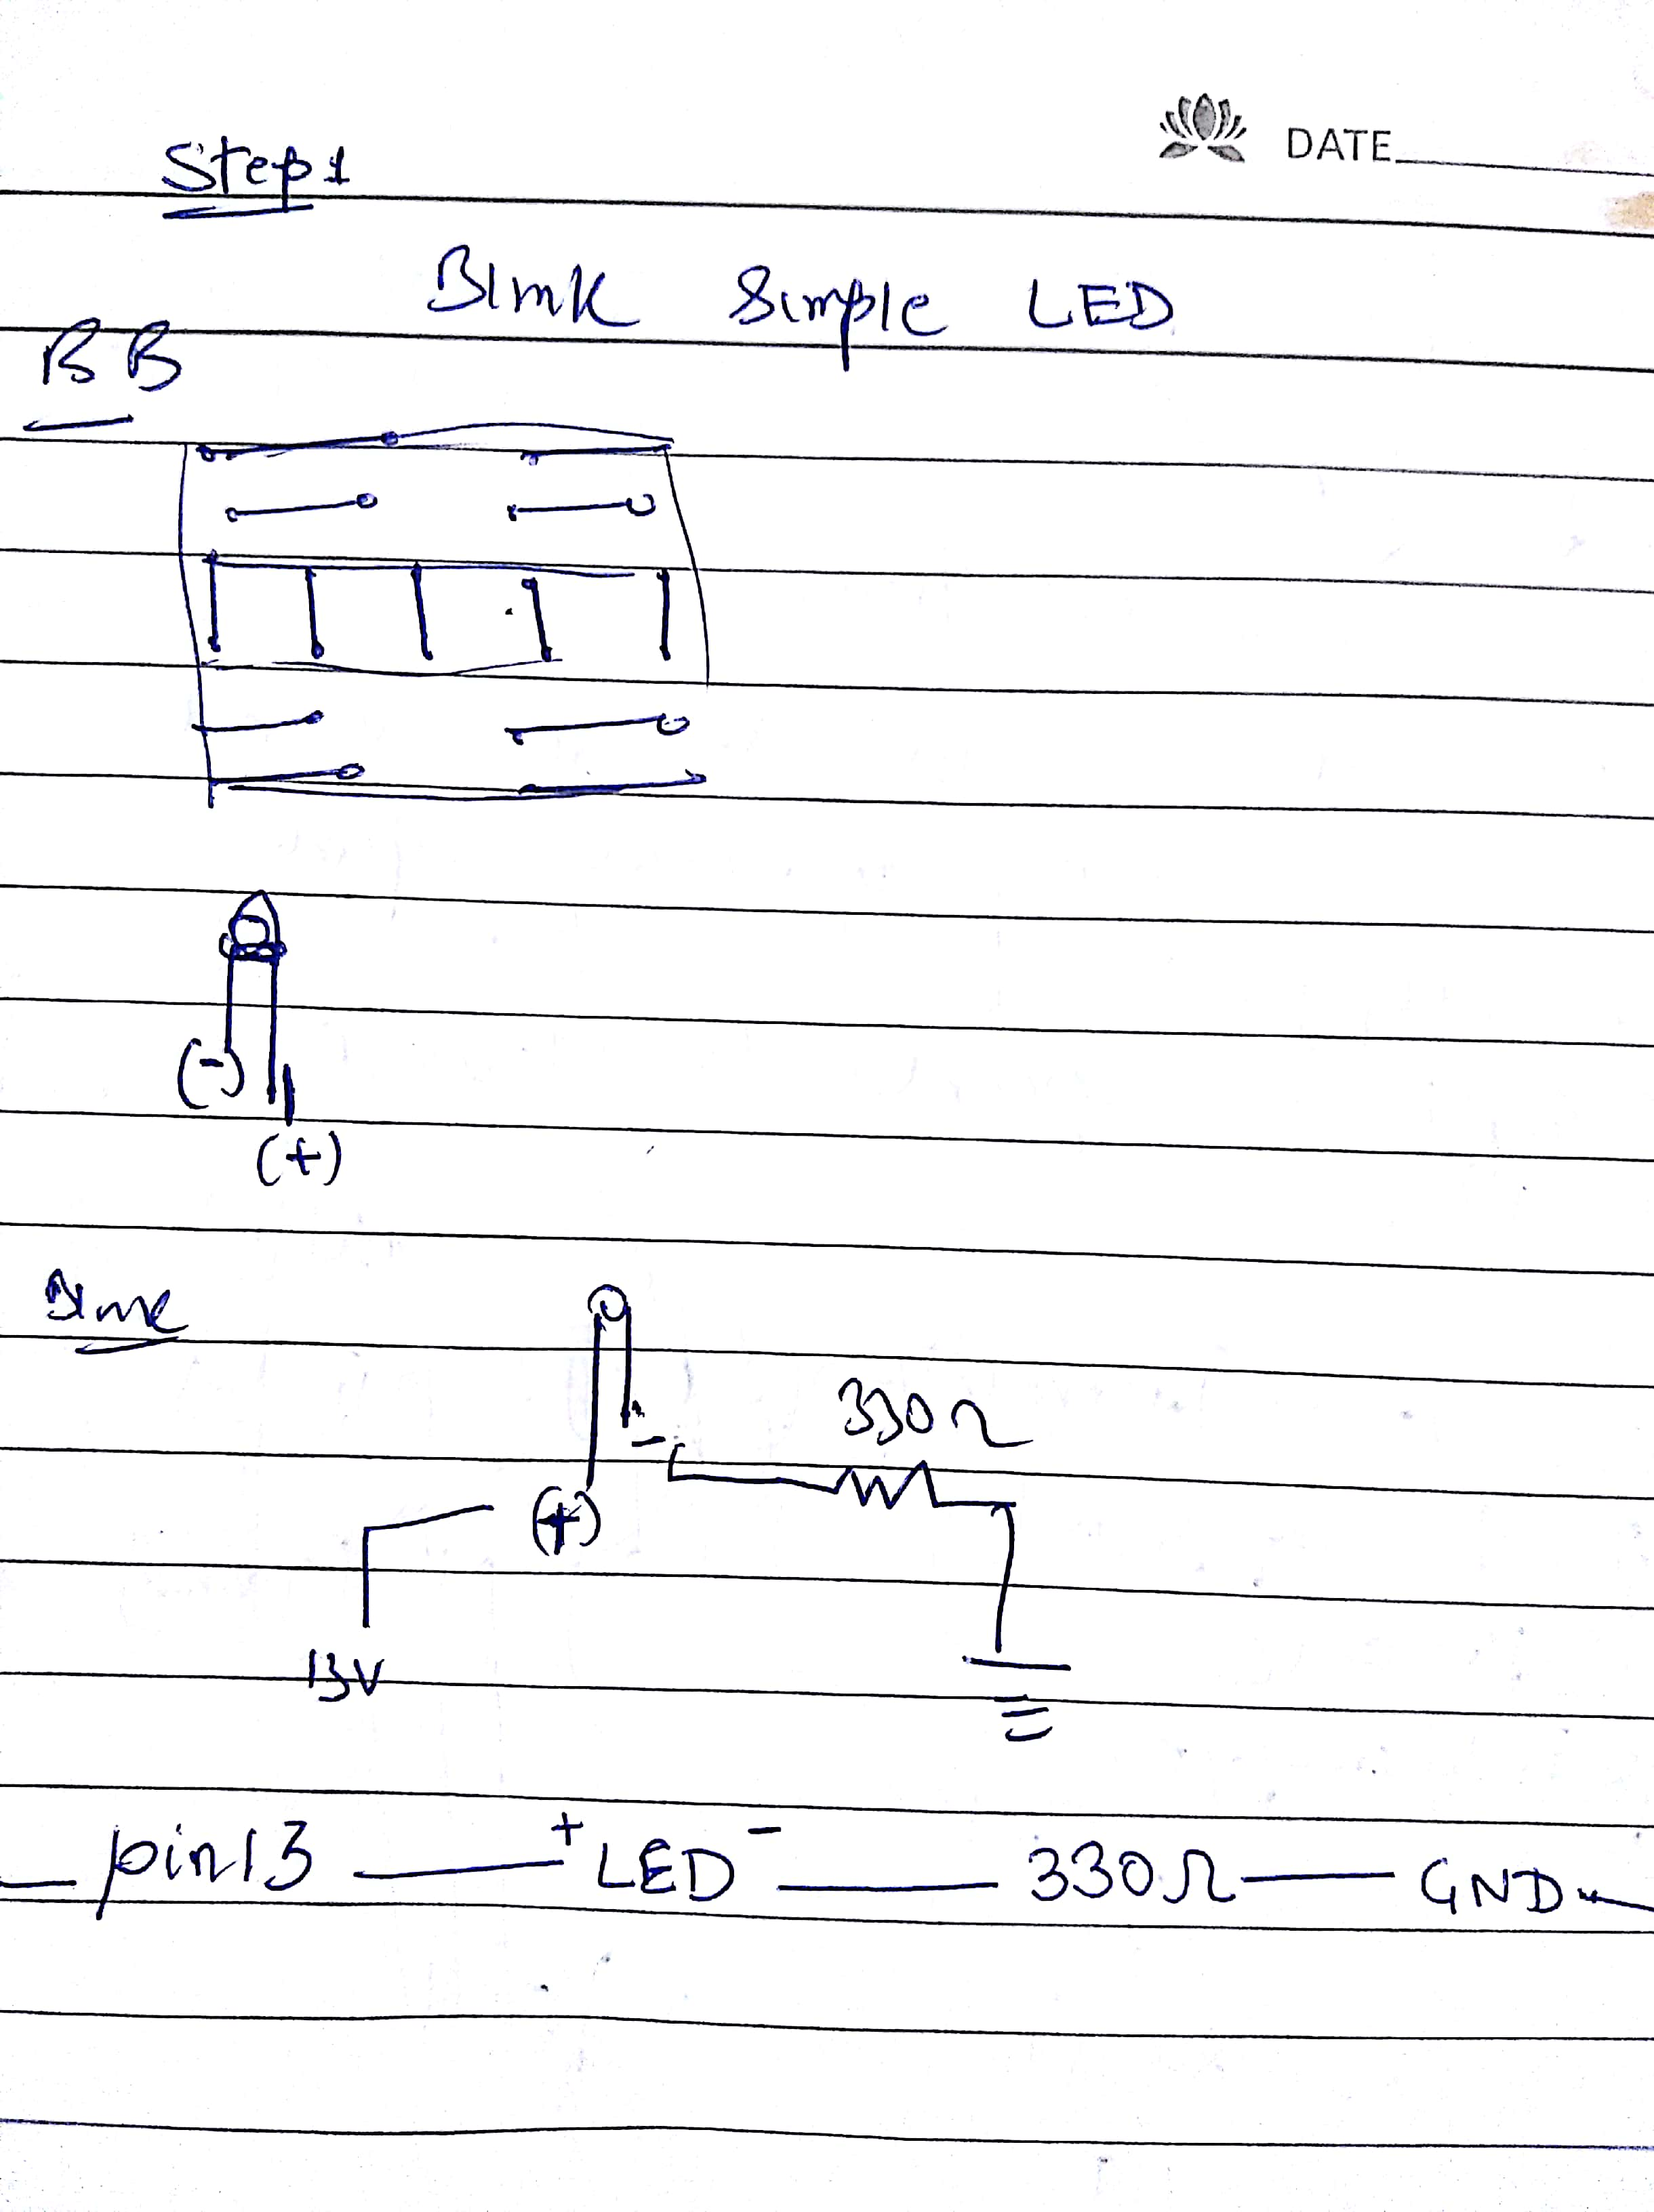 DATE
Step 1
Blink Simple LED
BB
(-)
(+)
330Ω
-
(+)
13V
pin13 — + LED - — 330Ω — GND